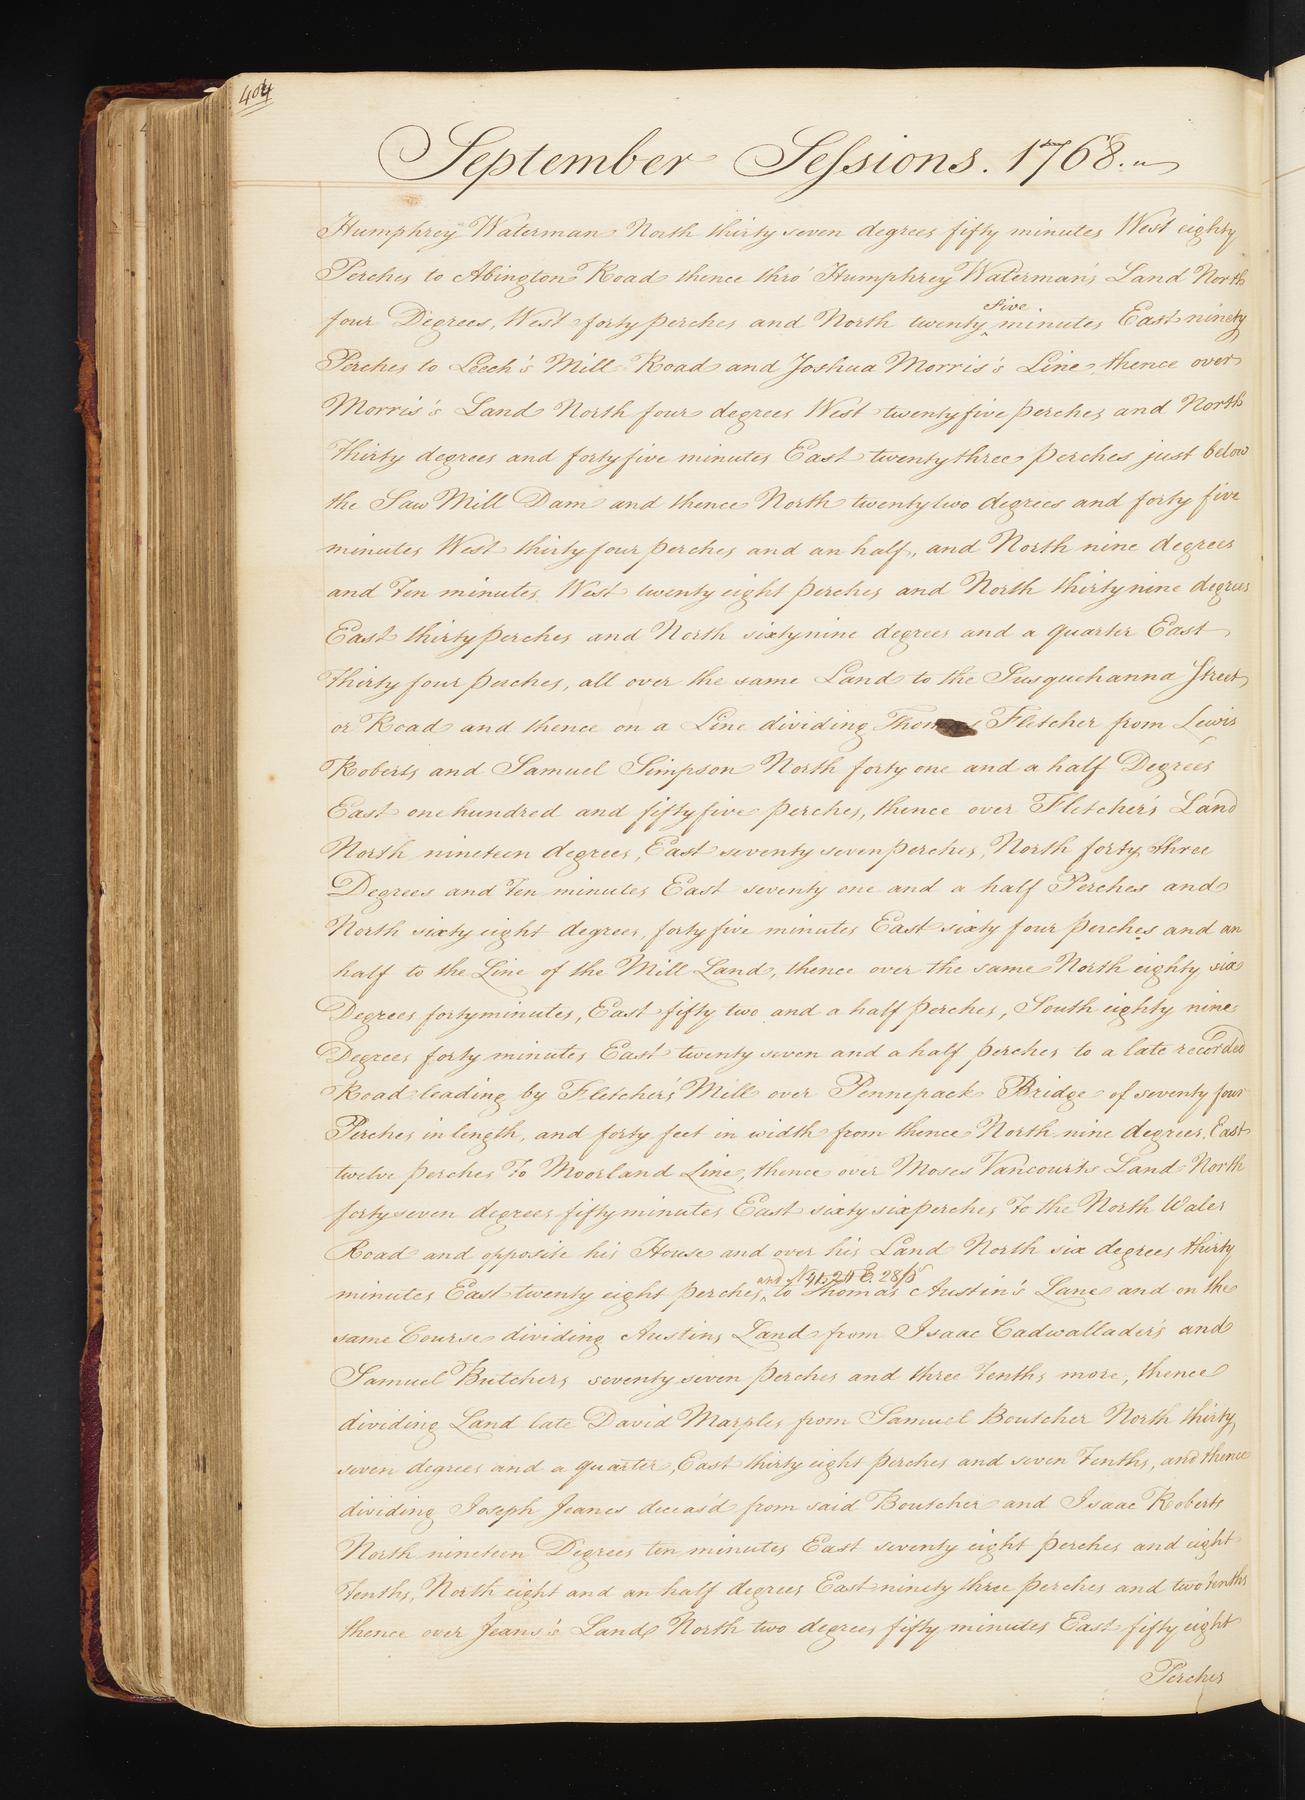 404
September Sessions. 1768.
Humphrey Waterman North thirty seven degrees fifty minutes West eighty
Perches to Abington Road thence thro' Humphrey Waterman's Land North
five
four Degrees, West forty perches and North twenty ‸ minutes East ninety
Perches to Leech's Mill Road and Joshua Morris's Line, thence over
Morris's Land North four degrees West twenty five perches and North
thirty degrees and forty five minutes East twenty three perches just below
the Saw Mill Dam and thence North twenty two degrees and forty five
minutes West thirty four perches and an half, and North nine degrees
and Ten minutes West twenty eight perches and North thirty nine degrees
East thirty perches and North sixty nine degrees and a quarter East
thirty four perches, all over the same Land to the Susquehanna Street
or Road and thence on a Line dividing Thomas Fletcher from Lewis
Roberts and Samuel Simpson North forty one and a half Degrees
East one hundred and fifty five perches, thence over Fletcher's Land
North nineteen degrees, East seventy seven perches, North forty three
Degrees and Ten minutes East seventy one and a half Perches and
North sixty eight degrees, forty five minutes East sixty four perches and an
half to the Line of the Mill Land, thence over the same North eighty six
Degrees forty minutes, East fifty two and a half perches, South eighty nine
Degrees forty minutes East twenty seven and a half perches to a late recorded
Road leading by Fletcher's Mill over Pennepack Bridge of seventy four
Perches in length, and forty feet in width from thence North nine degrees, East
twelve perches To Moorland Line, thence over Moses Vancourt's Land North
forty seven degrees fifty minutes East sixty six perches To the North Wales
Road and opposite his House and over his Land North six degrees thirty
and N 41. 20 E. 28 ps
minutes East twenty eight perches, ‸ to Thomas Austin's Lane and on the
same Course dividing Austins Land from Isaac Cadwallader's and
Samuel Butchers seventy seven perches and three Tenths more, thence
dividing Land late David Marples from Samuel Boutcher North thirty
seven degrees and a quarter, East thirty eight perches and seven Tenths, and thence
dividing Joseph Jeanes deceas'd from said Boutcher and Isaac Roberts
North nineteen Degrees ten minutes East seventy eight perches and eight
Tenths, North eight and an half degrees East ninety three perches and two tenths
thence over Jeans's Land North two degrees fifty minutes East fifty eight
Perches